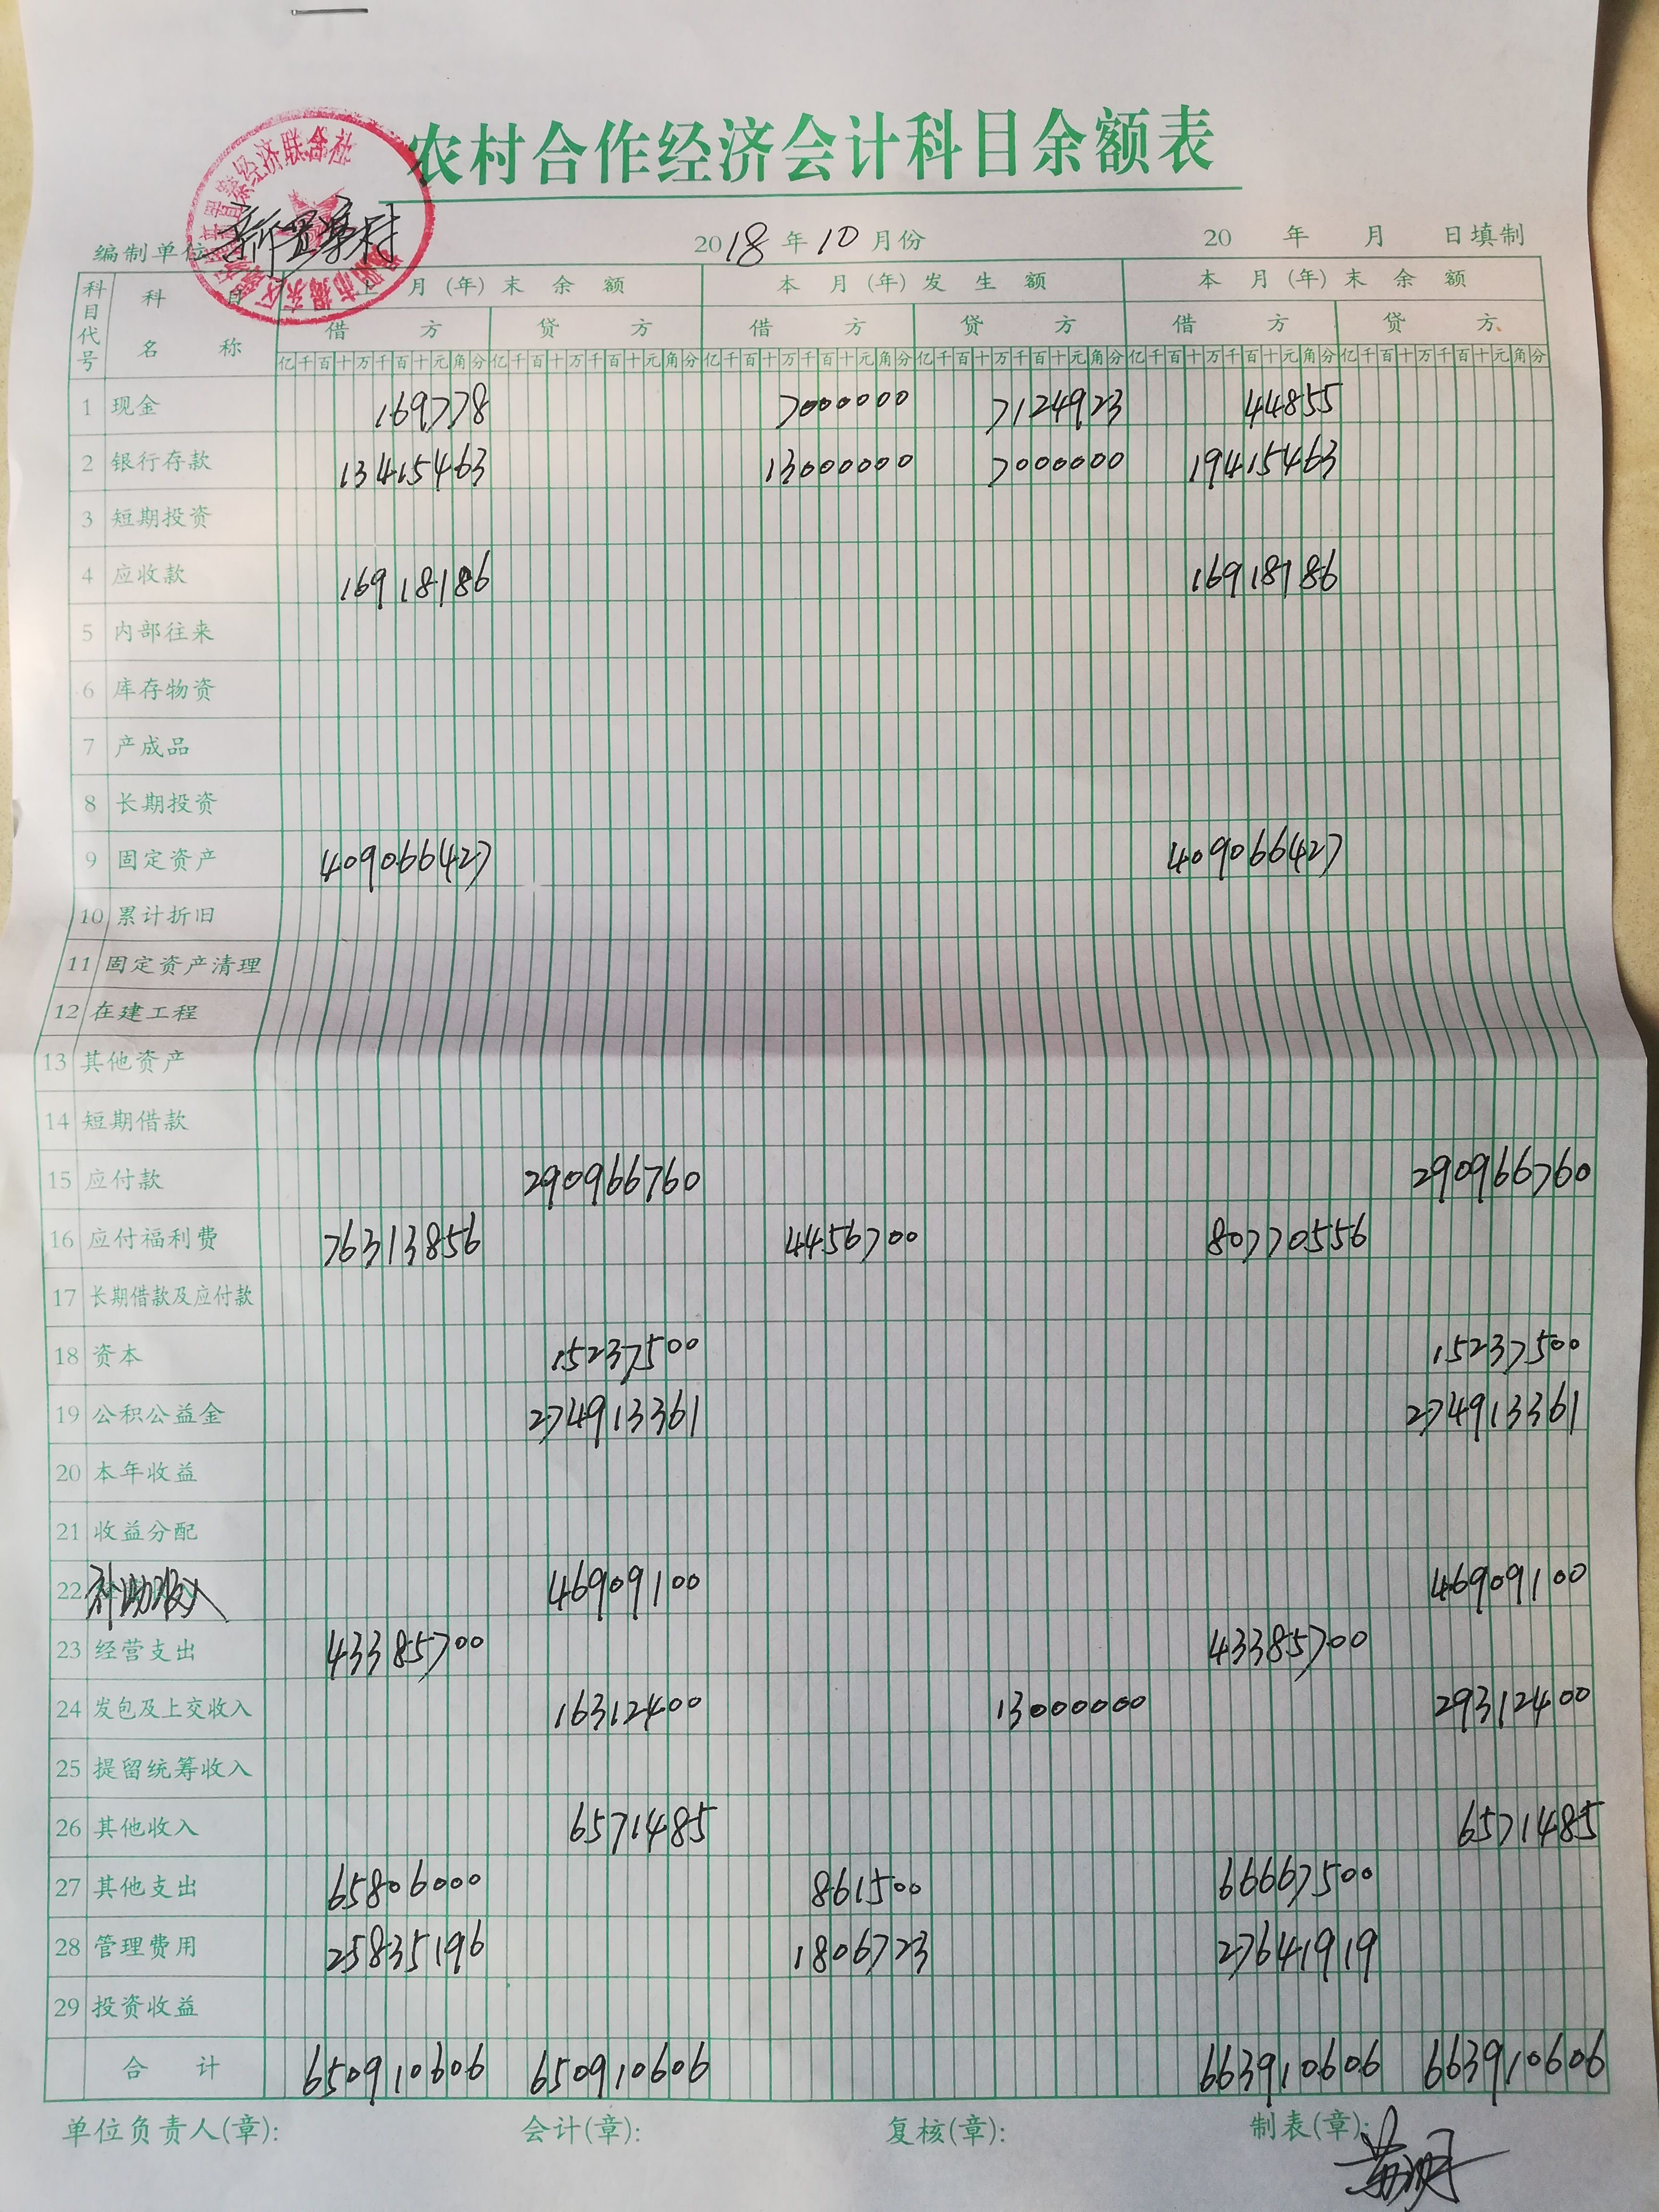 农村合作经济会计科目余额表
编制单位 新置寨村 2018年10月份 20 年 月 日填制
科目代号 科目名称 上月(年)末余额 本月(年)发生额 本月(年)末余额
借方 贷方 借方 贷方 借方 贷方
亿千百十万千百十元角分 亿千百十万千百十元角分 亿千百十万千百十元角分 亿千百十万千百十元角分 亿千百十万千百十元角分 亿千百十万千百十元角分
1 现金 169778 7000000 7124923 44855
2 银行存款 13415463 13000000 7000000 19415463
3 短期投资
4 应收款 16918186 16918186
5 内部往来
6 库存物资
7 产成品
8 长期投资
9 固定资产 409066427 409066427
10 累计折旧
11 固定资产清理
12 在建工程
13 其他资产
14 短期借款
15 应付款 290966760 290966760
16 应付福利费 76313856 4456700 80770556
17 长期借款及应付款
18 资本 15237500 15237500
19 公积公益金 274913361 274913361
20 本年收益
21 收益分配
22 补助收入 46909100 46909100
23 经营支出 43385700 43385700
24 发包及上交收入 16312400 13000000 29312400
25 提留统筹收入
26 其他收入 6571485 6571485
27 其他支出 65806000 861500 66667500
28 管理费用 25835196 1806723 27641919
29 投资收益
合计 650910606 650910606 663910606 663910606
单位负责人(章): 会计(章): 复核(章): 制表(章):